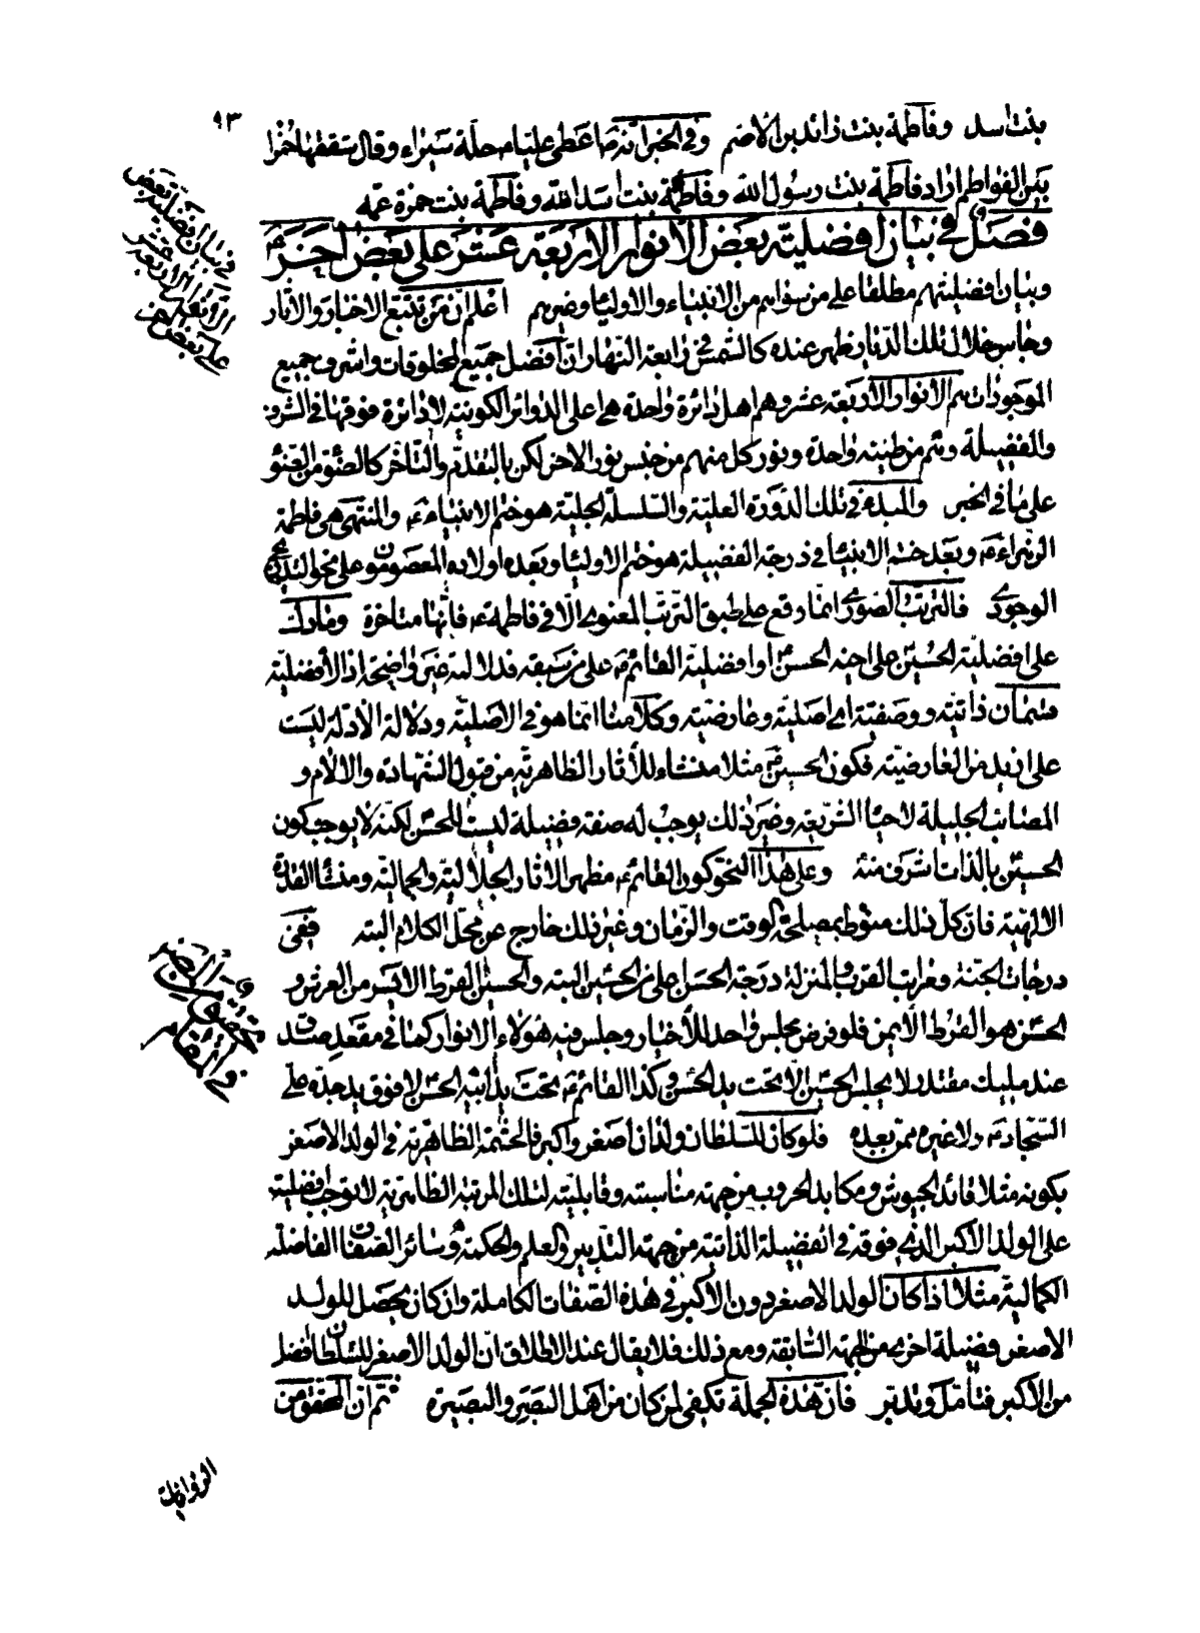 ٩٣
بنت اسد وفاطمة بنت زائد بن الاصم وفي الخبر انه ص اعطى عليا ع حلة سيراء وقال شققها خمرا
بين الفواطم اراد فاطمة بنت رسول الله وفاطمة بنت اسد الله وفاطمة بنت حمزة عمه
فصل في بيان افضلية بعض الانوار الاربعة عشر على بعض آخر
وبيان افضليتهم مطلقا على من سواهم من الانبياء والاولياء وغيرهم اعلم ان من تتبع الاخبار والآثار
وجاس خلال تلك الديار ظهر عنده كالشمس في رابعة النهار ان افضل جميع المخلوقات واشرف جميع
الموجودات هم الانوار الاربعة عشر وهم اهل دائرة واحدة هي اعلى الدوائر الكونية لا دائرة فوقها في الشرف
والفضيلة وهم من طينة واحدة ونور كل منهم من جنس نور الآخر لكن بالتقدم والتاخر كالضوء من الضوء
على ما في الخبر والمبدء في تلك الدورة العلية والسلسلة الجلية هو ختم الانبياء ص والمنتهى هي فاطمة
الزهراء ع وبعد ختم الانبياء في درجة الفضيلة هو ختم الاولياء وبعده اولاده المعصومون على نحو التدريج
الوجودي فالترتب الصوري انما وقع على طبق الترتب المعنوي الا في فاطمة ع فانها متاخرة وما دل
على افضلية الحسين على اخيه الحسن او افضلية القائم ع على من سبقه فدلالته غير واضحة اذ الافضلية
قسمان ذاتية ووصفية اي اصلية وعارضية وكلامنا انما هو في الاصلية ودلالة الادلة ليست
على ازيد من العارضية فكون الحسين ع مثلا منشاء للآثار الظاهرية من قبول الشهادة والآلام و
المصائب الجليلة لاحياء الشريعة وغير ذلك يوجب له صفة فضيلة ليست للحسن لكنه لا يوجب كون
الحسين بالذات اشرف منه وعلى هذا النحو كون القائم ع مظهر الآثار الجلالية والجمالية ومنشا القدرة
الالهية فان كل ذلك منوط بمصلحة الوقت والزمان وغير ذلك خارج عن محل الكلام البتة ففي
درجات الجنة ومراتب القرب والمنزلة درجة الحسن اعلى من الحسين البتة والحسين القرط الايسر من العرش و
الحسن هو القرط الايمن فلو فرض مجلس واحد للأخيار وجلس فيه هؤلاء الانوار كما في مقعد صدق
عند مليك مقتدر لا يجلس الحسين الا تحت يد الحسن وكذا القائم ع تحت يد ابيه الحسن لا فوق يد جده علي
السجاد ع ولا غيره ممن بعده فلو كان للسلطان ولدان اصغر واكبر فالحشمة الظاهرية في الولد الاصغر
بكونه مثلا قائد الجيوش ومكابد الحروب من جهة مناسبته وقابليته لتلك المرتبة الظاهرية لا توجب افضليته
على الولد الاكبر الذي فوقه في الفضيلة الذاتية من جهة التدبير والعلم والحكمة وسائر الصفات الفاضلة
الكمالية مثلا اذا كان الولد الاصغر دون الاكبر في هذه الصفات الكاملة وان كان يحصل للولد
الاصغر فضيلة اخرى من الجهة السابقة ومع ذلك فلا يقال عند الاطلاق ان الولد الاصغر للسلطان افضل
من الاكبر فتأمل وتدبر فان هذه الجملة تكفي لمن كان من اهل البصر والبصيرة ثم ان المحقق من
في بيان افضلية بعض
الانوار الاربعة عشر
على بعض آخر
في المقام
الروايات